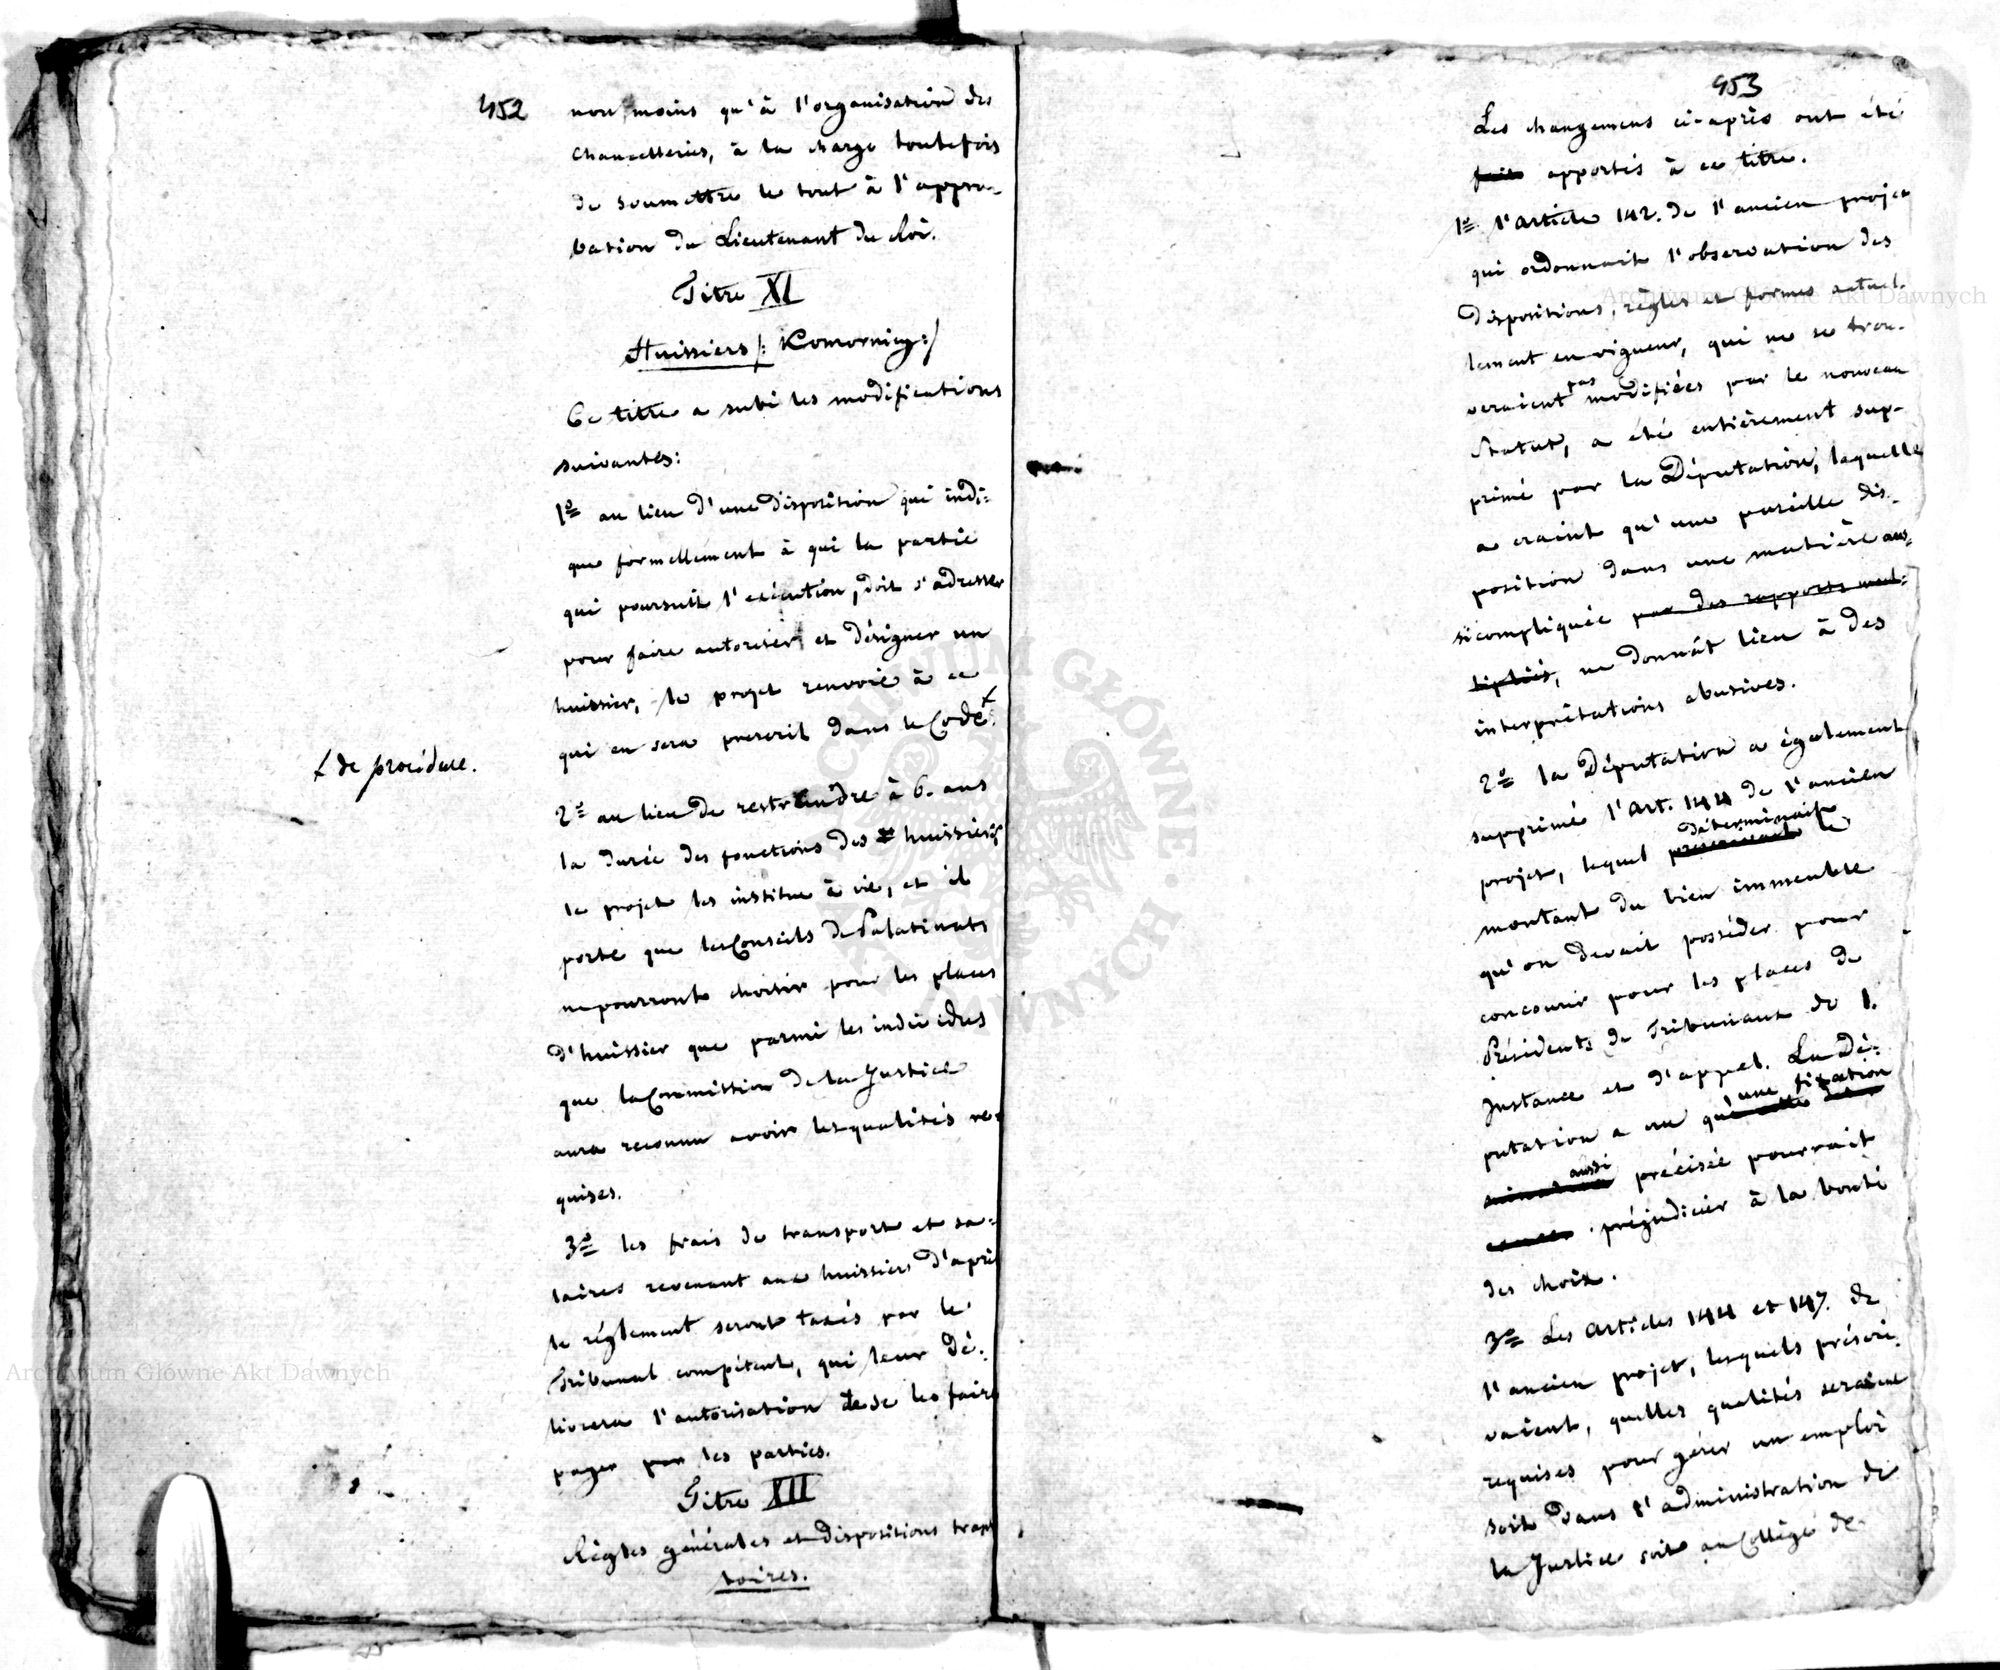 452
non moins qu'à l'organisation des
Chancelleries, à la charge toutefois
de soumettre le tout à l'appro-
bation du Lieutenant du Roi.
Titre XI
Huissiers /: Komornicy :/
Ce titre a subi les modifications
suivantes:
1º au lieu d'une disposition qui indi-
que formellement à qui la partie
qui poursuit l'exécution, doit s'adresser
pour faire autoriser et désigner un
huissier, le projet renvoie à ce
qui en sera prescrit dans le Code +
+ de procédure.
2º au lieu de restreindre à 6. ans
la durée des fonctions des huissiers
le projet les institue à vie, et il
porte que les Conseils de Palatinats
ne pourront choisir pour les places
d'huissier que parmi les individus
que la Commission de la Justice
aura reconnu avoir les qualités re-
quises.
3º les frais de transport et sa-
laires revenant aux huissiers d'après
le réglement seront taxés par le
Tribunal compétent, qui leur dé-
livrera l'autorisation de se les faire
payer par les parties.
Titre XII
Règles générales et dispositions transi
toires.
453
Les changemens ci-après ont été
faits apportés à ce titre.
1º l'article 142. de l'ancien projet
qui ordonnait l'observation des
dispositions, règles et formes actuel-
lement en vigueur, qui ne se trou-
veraient pas modifiées par le nouveau
Statut, a été entièrement sup-
primé par la Députation, laquelle
a craint qu'une pareille dis-
position dans une matière aus-
si compliquée par des rapports mul-
tipliés, ne donnât lieu à des
interprétations abusives.
2º la Députation a également
supprimé l'Art. 144 de l'ancien
déterminait
projet, lequel prescrivait le
montant du bien immeuble
qu'on devait posséder pour
concourir pour les places de
Présidents de Tribunaux de 1.
Instance et d'appel. La Dé-
une fixation
putation a cru qu'
aussi
précisée pourrait
préjudicier à la bonté
des choix.
3º Les Articles 144 et 147. de
l'ancien projet, lesquels préscri-
vaient, quelles qualités seraient
requises pour gérer un emploi
soit dans l'administration de
la Justice soit au Collège de
Archiwum Główne Akt Dawnych
Archiwum Główne Akt Dawnych
ARCHIWUM GŁÓWNE AKT DAWNYCH